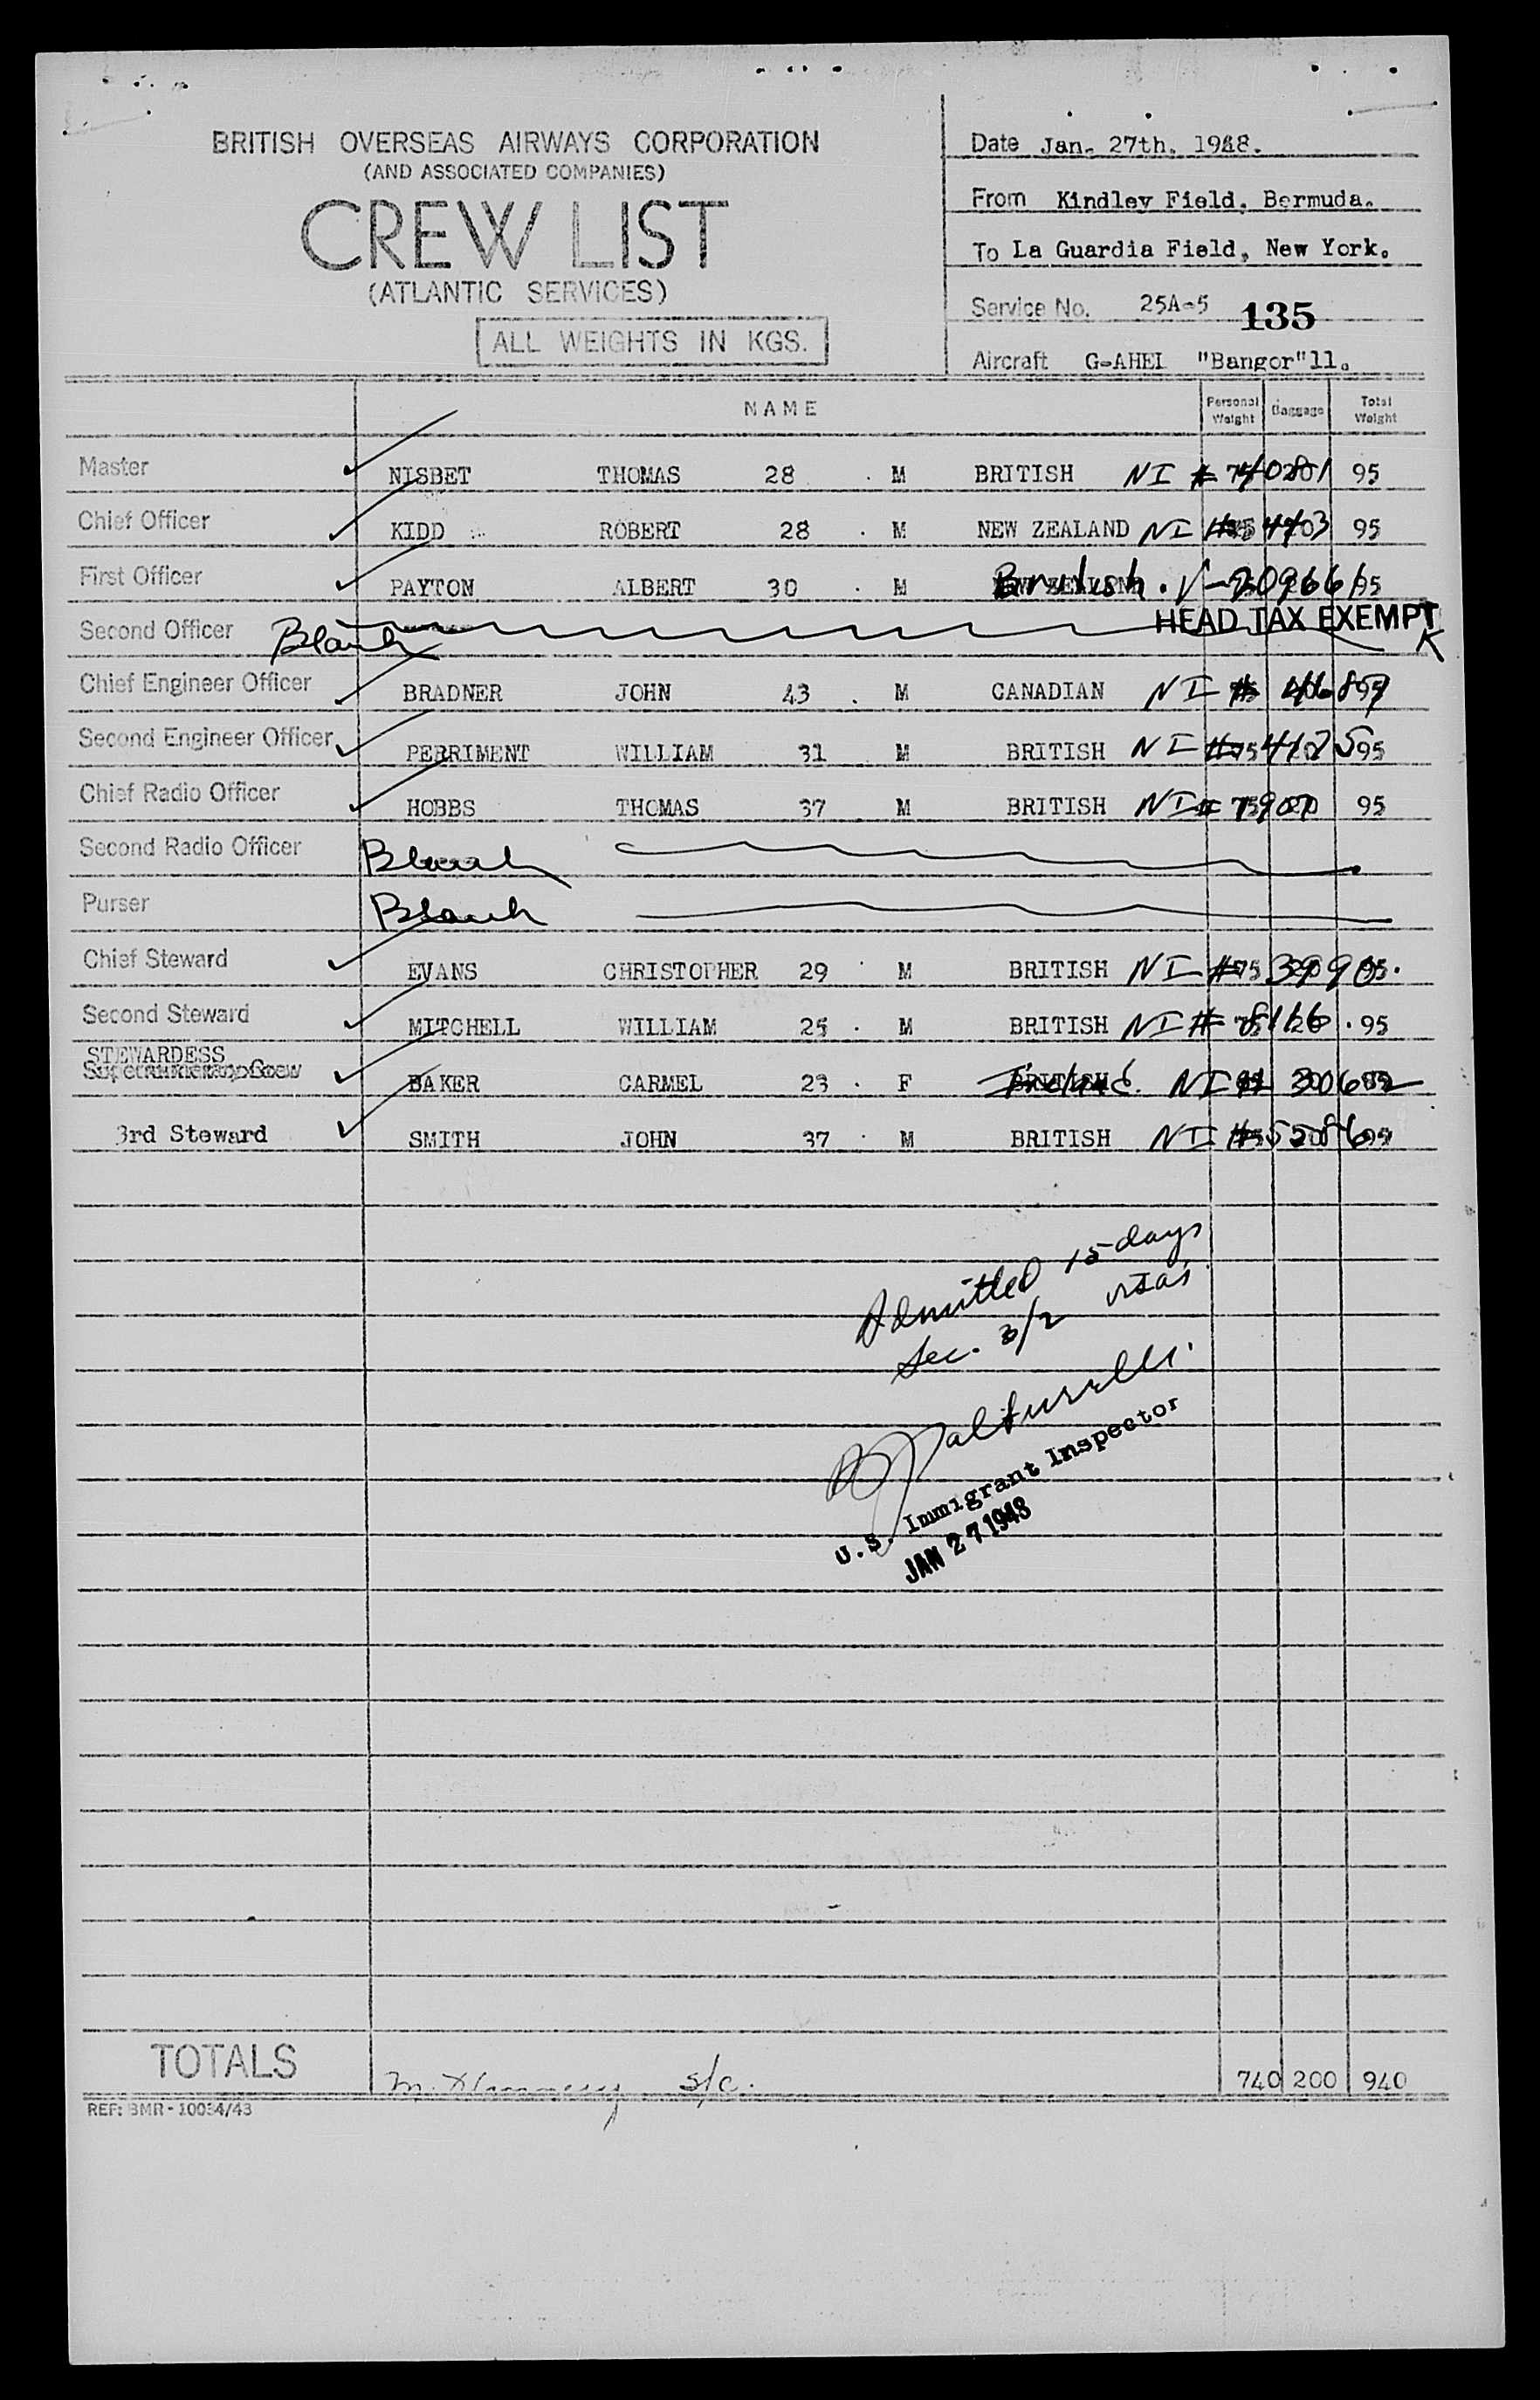 BRITISH OVERSEAS AIRWAYS CORPORATION
(AND ASSOCIATED COMPANIES)
CREW LIST
(ATLANTIC SERVICES)
ALL WEIGHTS IN KGS.
Date Jan. 27th. 1948.
From Kindley Field, Bermuda.
To La Guardia Field, New York.
Service No. 25A-5 135
Aircraft G-AHEL "Bangor"11.
NAME Personal Weight Baggage Total Weight
Master NISBET THOMAS 28 . M BRITISH NI # 95
Chief Officer KIDD ROBERT 28 . M NEW ZEALAND NI # 95
First Officer PAYTON ALBERT 30 . M British. V-209661 95
Second Officer Blank HEAD TAX EXEMPT K
Chief Engineer Officer BRADNER JOHN 43 . M CANADIAN NI #
Second Engineer Officer PERRIMENT WILLIAM 31 M BRITISH NI # 95
Chief Radio Officer HOBBS THOMAS 37 M BRITISH NI # 95
Second Radio Officer Blank
Purser Blank
Chief Steward EVANS CHRISTOPHER 29 . M BRITISH NI #
Second Steward MITCHELL WILLIAM 25 . M BRITISH NI # 95
STEWARDESS
Supernumerary Crew BAKER CARMEL 23 . F Ireland. NI #
3rd Steward SMITH JOHN 37 . M BRITISH NI #
Admitted 15 days
Sec. 3/2 visas
U.S. Immigrant Inspector
JAN 27 1948
TOTALS s/c. 740 200 940
REF: BMR-10034/43